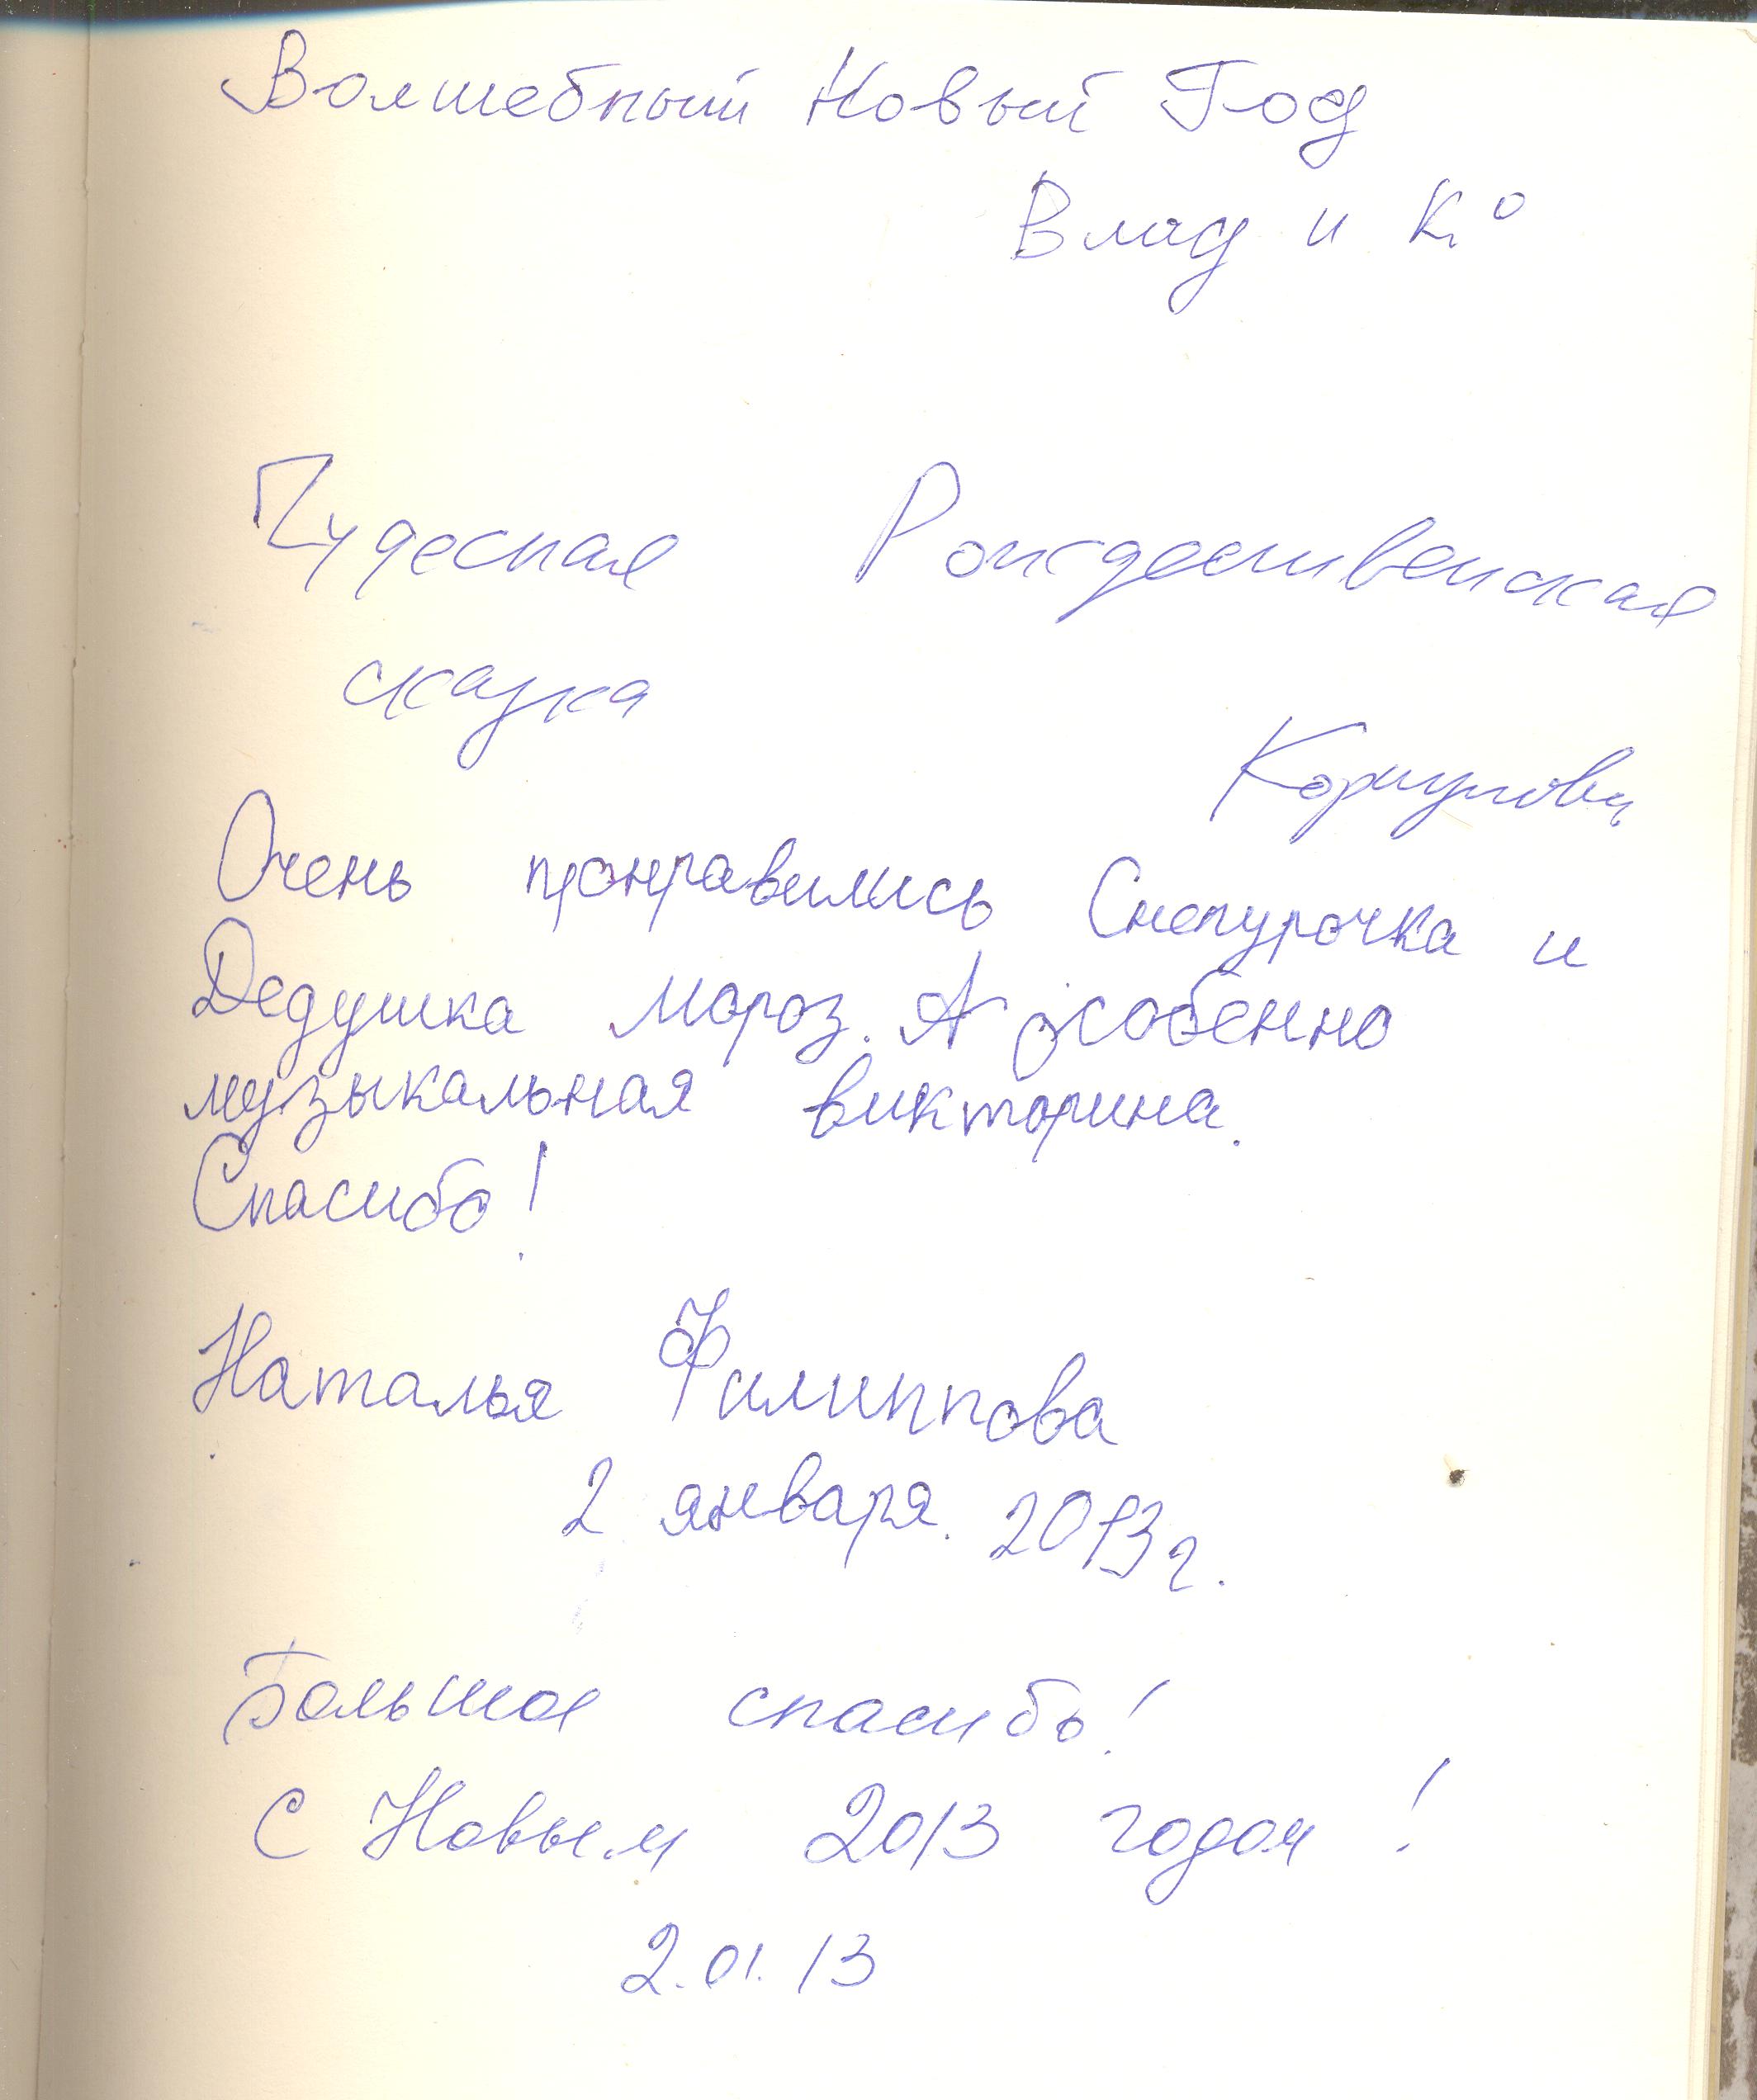 Волшебный Новый Год
Влад и К°
Чудесная Рождественская
сказка
Очень понравились Снегурочка и
Дедушка Мороз. А особенно
музыкальная викторина.
Спасибо!
Наталья Филиппова
2 января. 2013 г.
Большое спасибо!
С Новым 2013 годом!
2.01.13